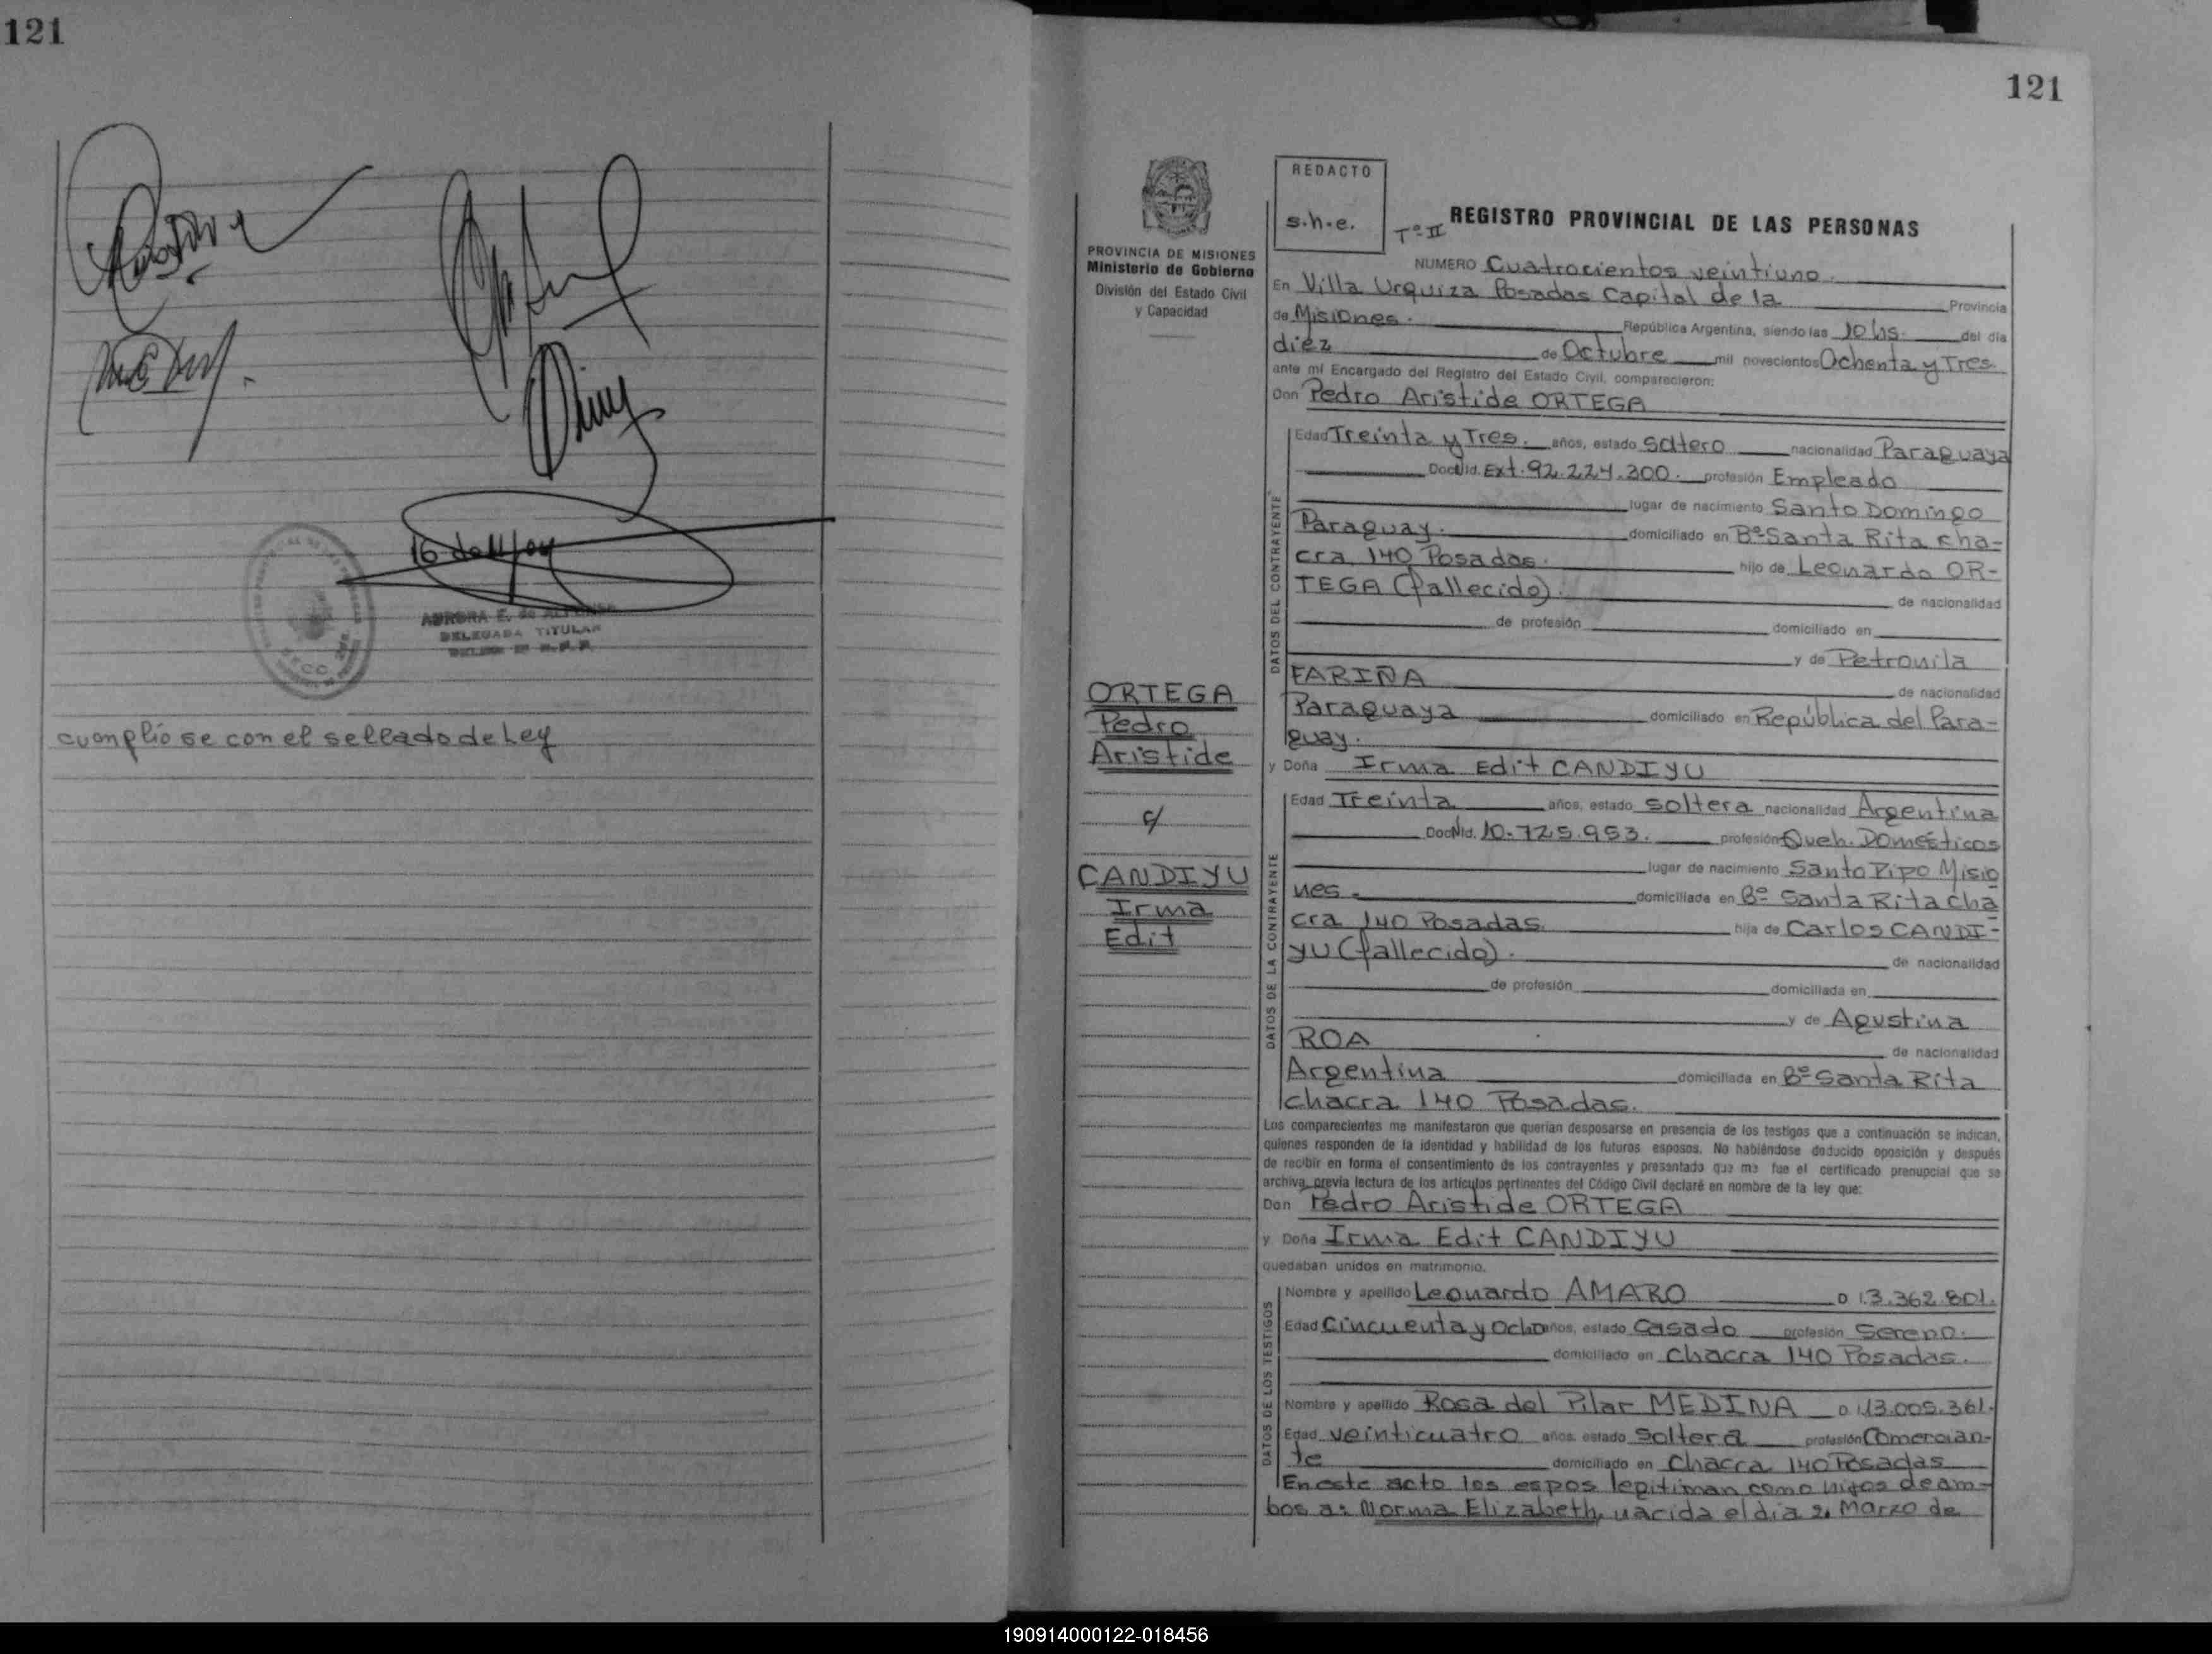 121
16 de 11/04
AURORA E. de
DELEGADA TITULAR
cumplióse con el sellado de Ley
121
PROVINCIA DE MISIONES
Ministerio de Gobierno
División del Estado Civil
y Capacidad
ORTEGA
Pedro
Aristide
c/
CANDIYU
Irma
Edit
REDACTO
s.h.e.
Tº II REGISTRO PROVINCIAL DE LAS PERSONAS
NUMERO Cuatrocientos veintiuno.
En Villa Urquiza Posadas Capital de la Provincia
de Misiones. República Argentina, siendo las 10 hs. del día
diez de Octubre mil novecientos Ochenta y Tres.
ante mí Encargado del Registro del Estado Civil, comparecieron:
Don Pedro Aristide ORTEGA
DATOS DEL CONTRAYENTE
Edad Treinta y Tres. años, estado Soltero nacionalidad Paraguaya
Doc. Nid. Ext. 92.224.300. profesión Empleado
lugar de nacimiento Santo Domingo
Paraguay. domiciliado en Bº Santa Rita cha-
cra 140 Posadas. hijo de Leonardo OR-
TEGA (fallecido). de nacionalidad
de profesión domiciliado en
y de Petronila
FARIÑA de nacionalidad
Paraguaya domiciliado en República del Para-
guay.
y Doña Irma Edit CANDIYU
DATOS DE LA CONTRAYENTE
Edad Treinta años, estado soltera nacionalidad Argentina
Doc. Nid. 10.725.953. profesión Queh. Domésticos
lugar de nacimiento Santo Pipo Misio
nes. domiciliada en Bº Santa Rita cha
cra 140 Posadas. hija de Carlos CANDI-
YU (fallecido). de nacionalidad
de profesión domiciliada en
y de Agustina
ROA de nacionalidad
Argentina domiciliada en Bº Santa Rita
chacra 140 Posadas.
Los comparecientes me manifestaron que querían desposarse en presencia de los testigos que a continuación se indican,
quienes responden de la identidad y habilidad de los futuros esposos. No habiéndose deducido oposición y después
de recibir en forma el consentimiento de los contrayentes y presentado que me fue el certificado prenupcial que se
archiva, previa lectura de los artículos pertinentes del Código Civil declaré en nombre de la ley que:
Don Pedro Aristide ORTEGA
y Doña Irma Edit CANDIYU
quedaban unidos en matrimonio.
DATOS DE LOS TESTIGOS
Nombre y apellido Leonardo AMARO D 13.362.801.
Edad Cincuenta y Ocho años, estado Casado profesión Sereno.
domiciliado en Chacra 140 Posadas.
Nombre y apellido Rosa del Pilar MEDINA D 13.005.361.
Edad veinticuatro años, estado Soltera profesión Comercian-
te domiciliado en Chacra 140 Posadas
En este acto los espos legitiman como hijos de am-
bos a: Norma Elizabeth, nacida el día 2, Marzo de
190914000122-018456